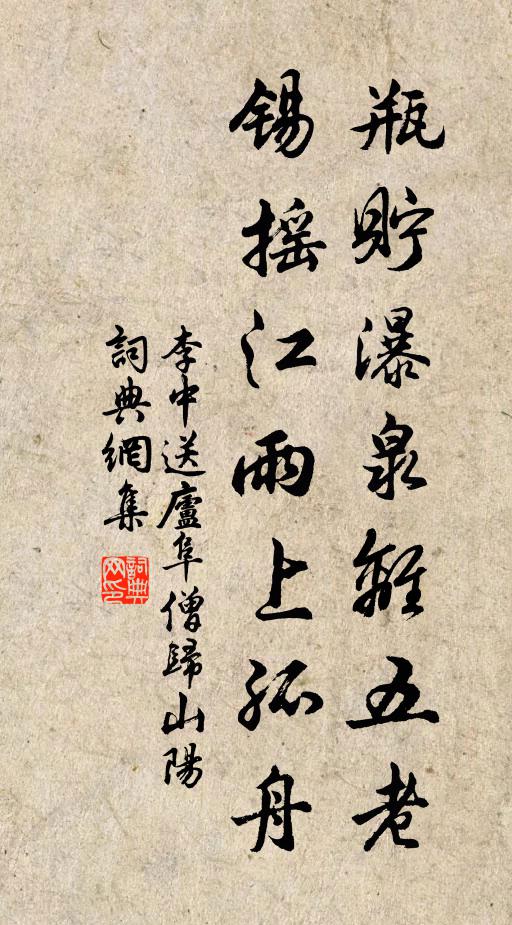 瓶貯瀑泉離五老
錫搖江雨上孤舟
李中送廬阜僧歸山陽
詞典網集
詞典
网印